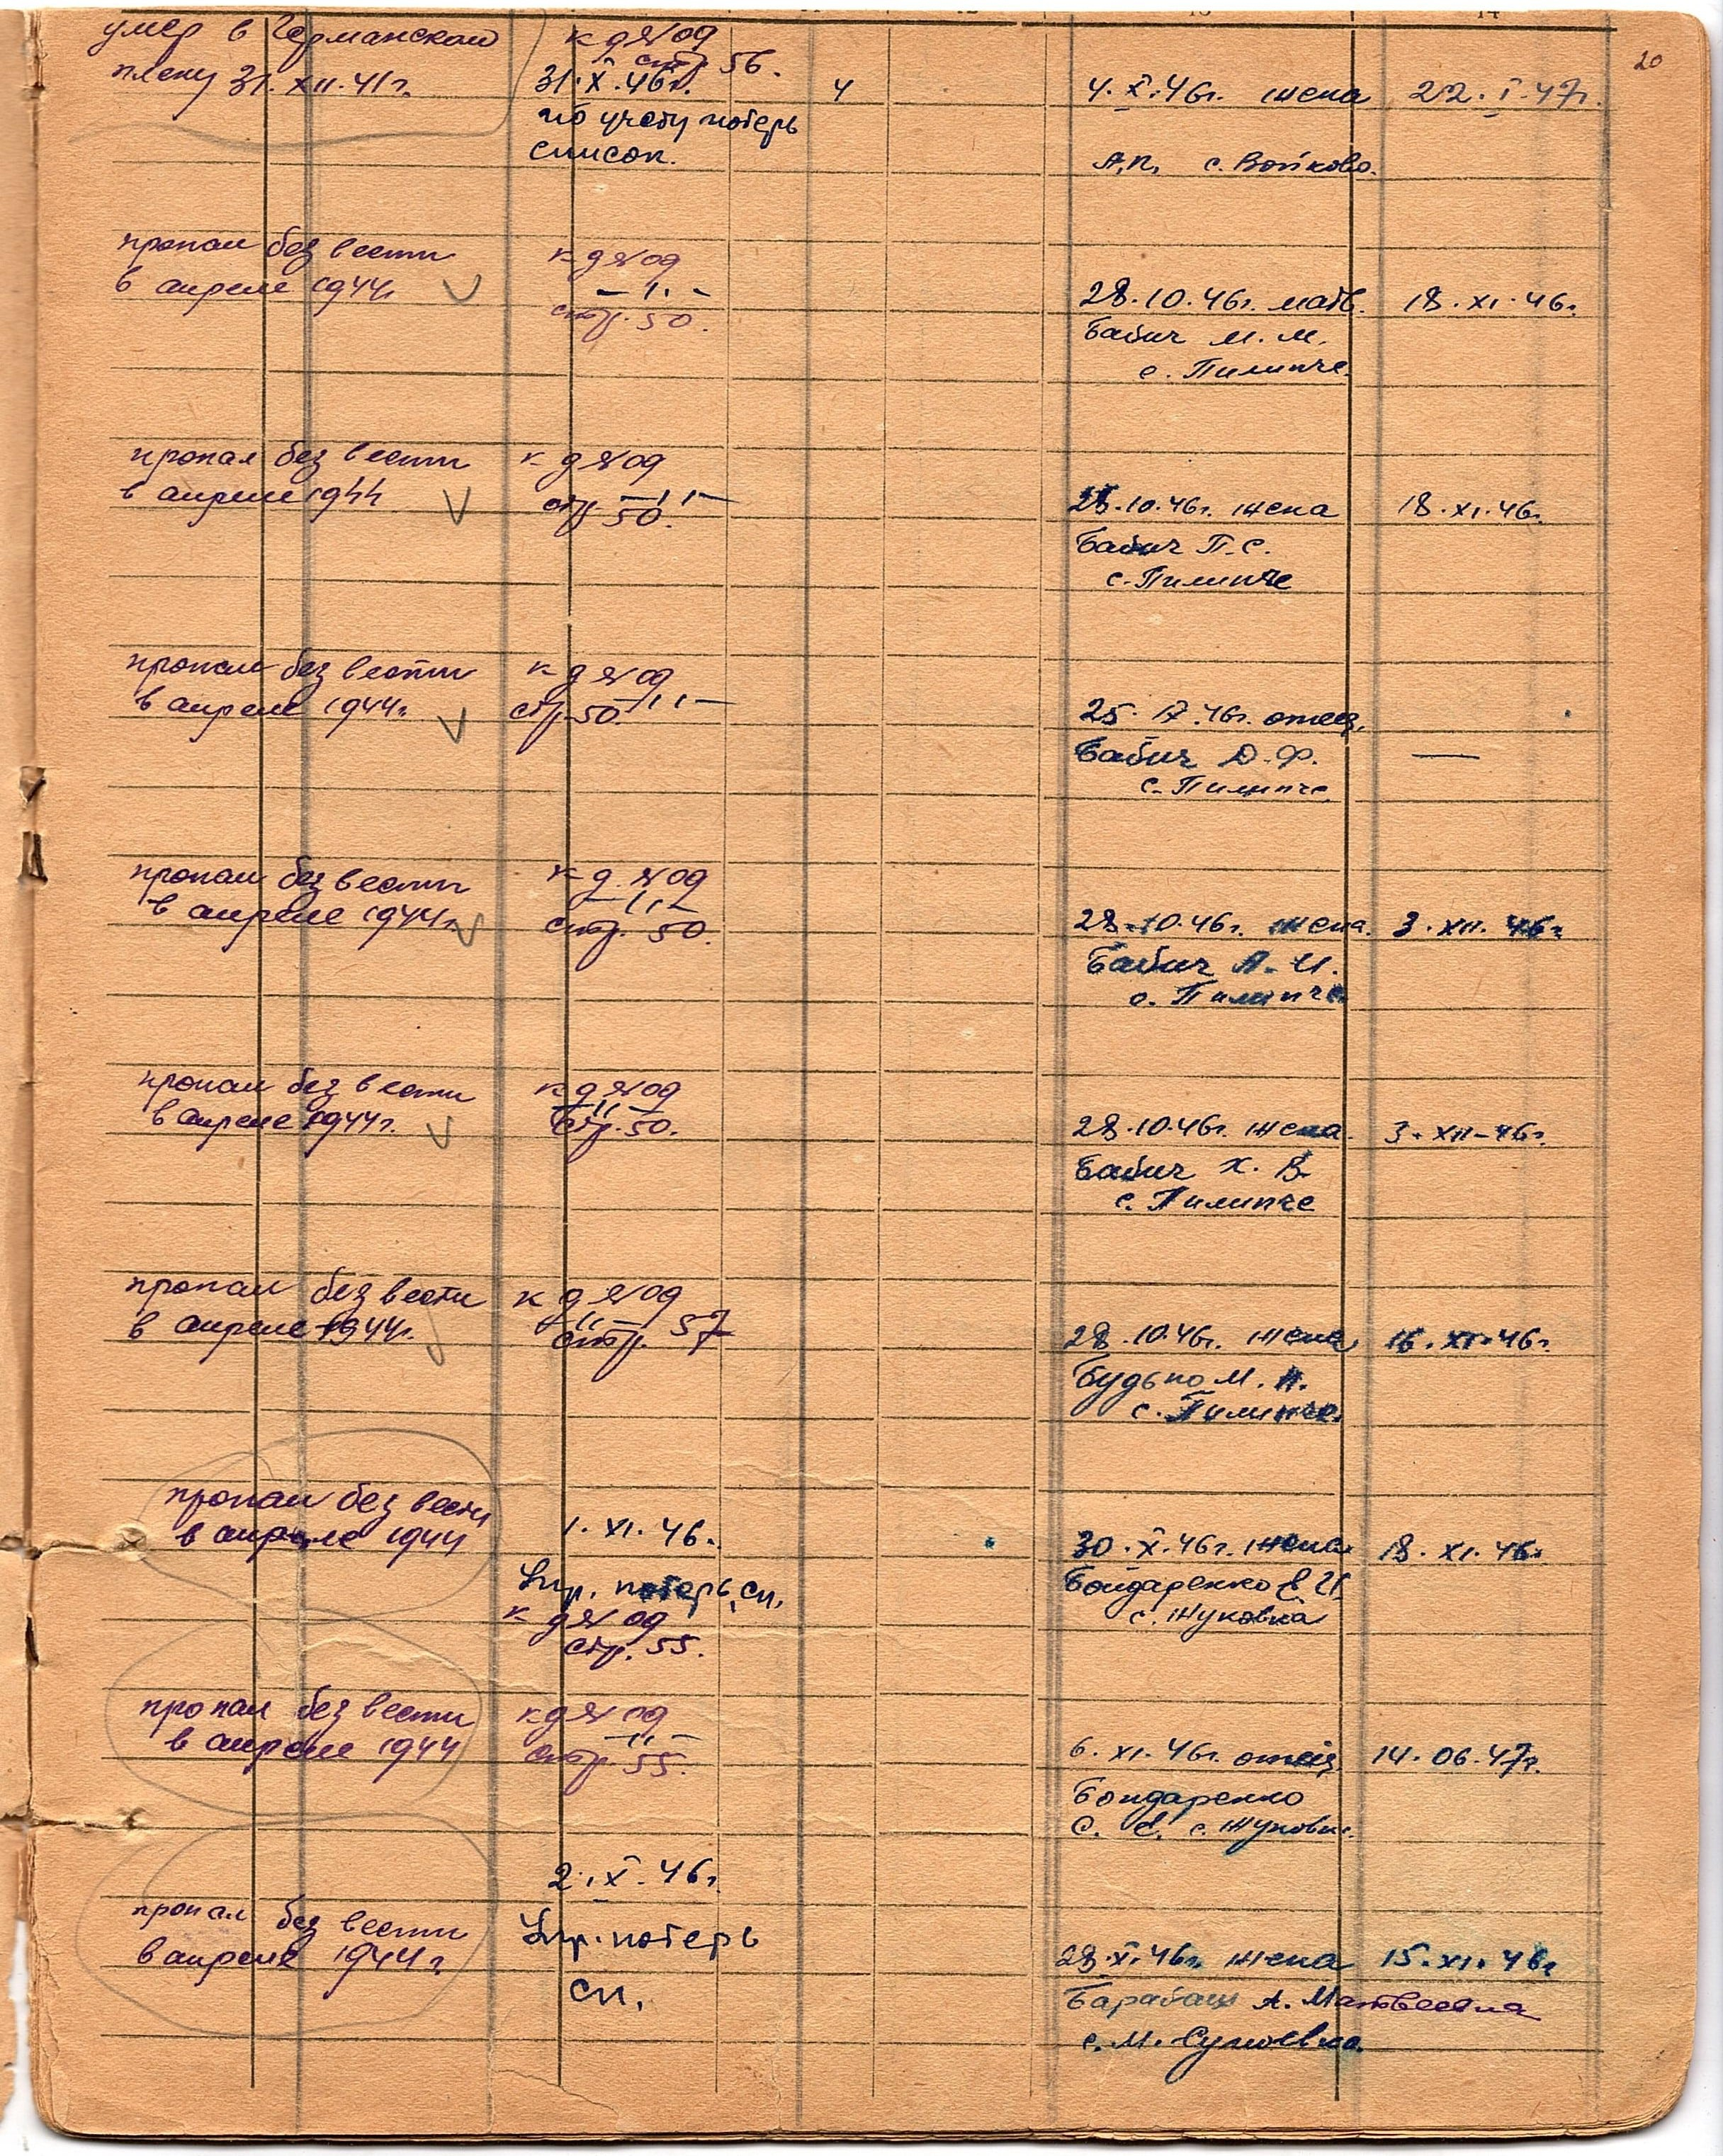 13 14
20
умер в Германском
плену 31.XII.41г.
к д № 09
стр. 56.
31.X.46г.
по учету потерь
список.
4
4.X.46г. жена 22.I.47г.
А.П. с. Войково.
пропал без вести
в апреле 1944г.
к д № 09
— 〃 —
стр. 50.
28.10.46г. мать. 18.XI.46г.
Бабич М.М.
с. Пилипче.
пропал без вести
в апреле 1944
к д № 09
— 〃 —
стр 50.
28.10.46г. жена 18.XI.46г.
Бабич П.С.
с. Пилипче
пропал без вести
в апреле 1944г.
к д № 09
стр. 50. — 〃 —
25. 46г. отец. —
Бабич Д.Ф.
с. Пилипче
пропал без вести
в апреле 1944г.
к д. № 09
— 〃 —
стр. 50.
28.10.46г. жена. 3.XII.46г.
Бабич А.И.
с. Пилипче
пропал без вести
в апреле 1944г.
к д № 09
— 〃 —
стр. 50.
28.10.46г. жена. 3.XII-46г.
Бабич Х.В.
с. Пилипче
пропал без вести
в апреле 1944г.
к д № 09
〃 —
стр. 57
28.10.46г. жена 16.XI.46г.
Будько М.
с. Пилипче.
пропал без вести
в апреле 1944
1.XI.46.
Упр. потерь, сп.
к д № 09
стр. 55.
30.X.46г. жена. 18.XI.46г
Бондаренко Е И.
с. Жуковка
пропал без вести
в апреле 1944
к д № 09
— 〃 —
стр. 55.
6.XI.46г. отец 14.06.47г.
Бондаренко
С. Е. с. Жуковк.
пропал без вести
в апреле 1944г.
2.X.46г.
Упр. потерь
сп.
28.X.46г. жена 15.XI.46г
Барабаш А. Матвеевна
с. М. Супоевка.